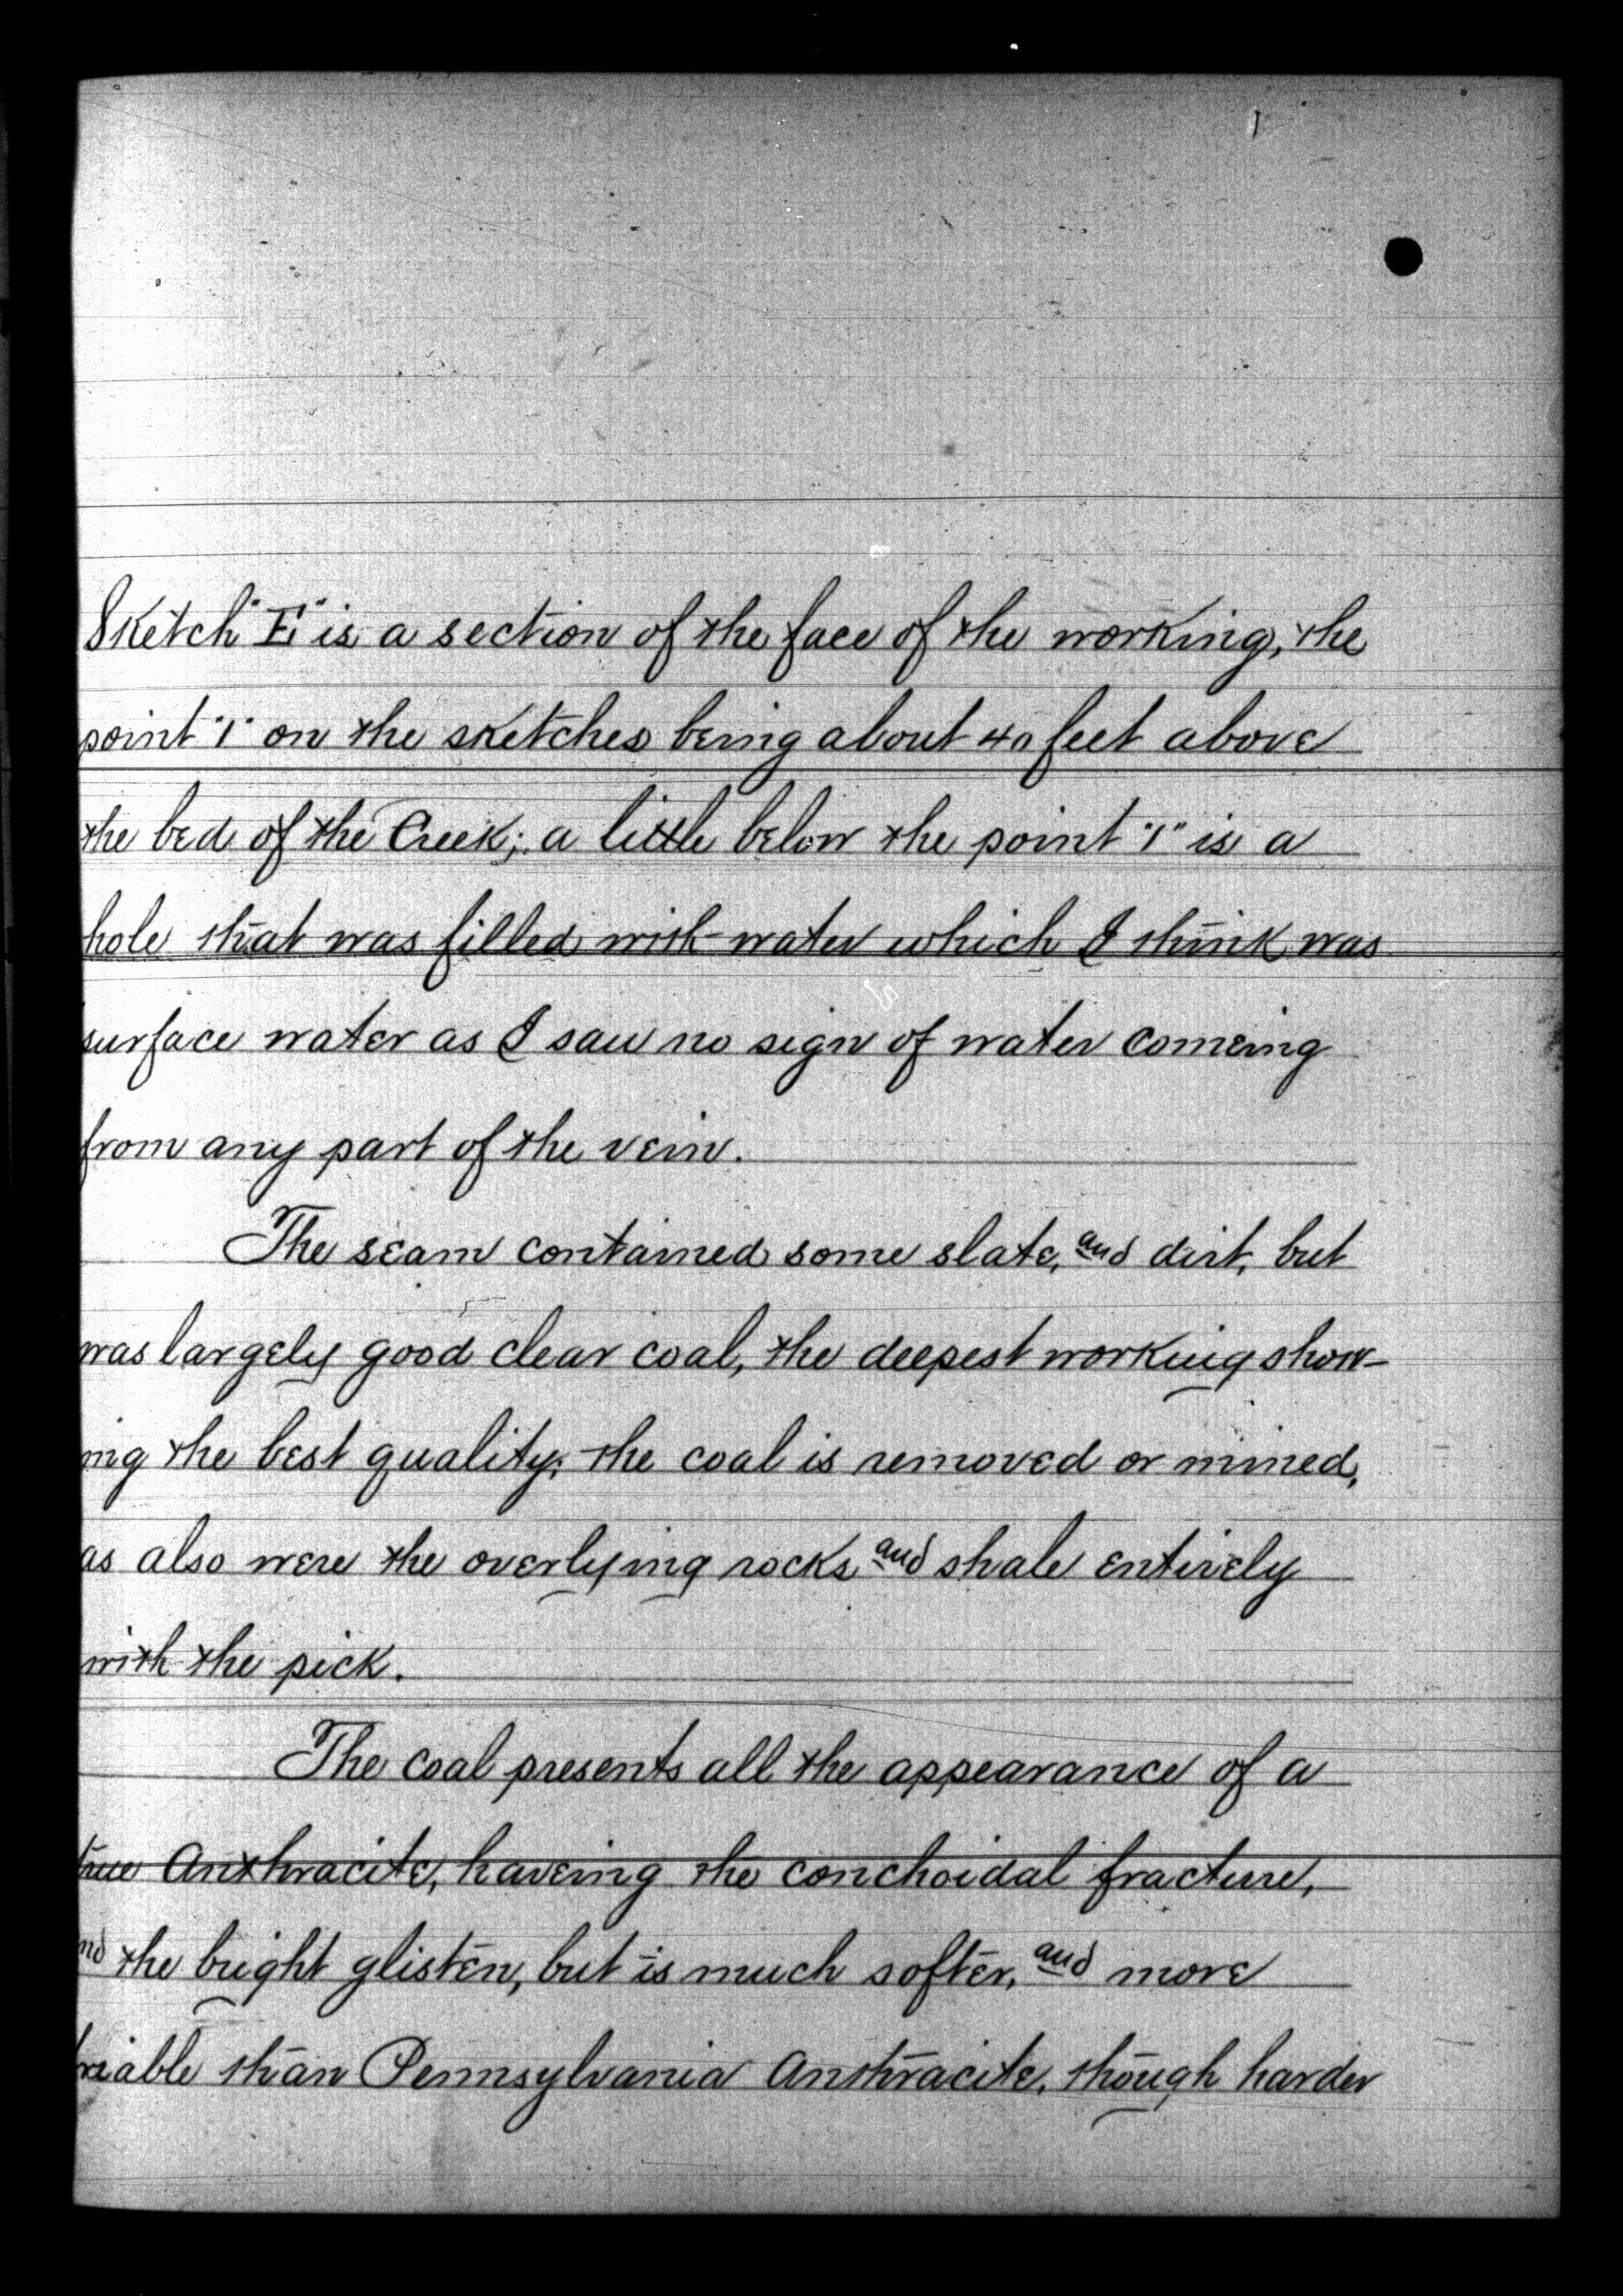 Sketch "E" is a section of the face of the working, the
point "1" on the sketches being about 40 feet above
the bed of the Creek; a little below the point "1" is a
hole that was filled with water which I think was
surface water as I saw no sign of water comeing
from any part of the vein.
The seam contained some slate, and dirt, but
was largely good clear coal, the deepest working show-
ing the best quality; the coal is removed or mined,
as also were the overlying rocks and shale entirely
with the pick.
The coal presents all the appearance of a
true Anthracite, haveing the conchoidal fracture,
nd the bright glisten, but is much softer, and more
riable than Pennsylvania Anthracite, though harder